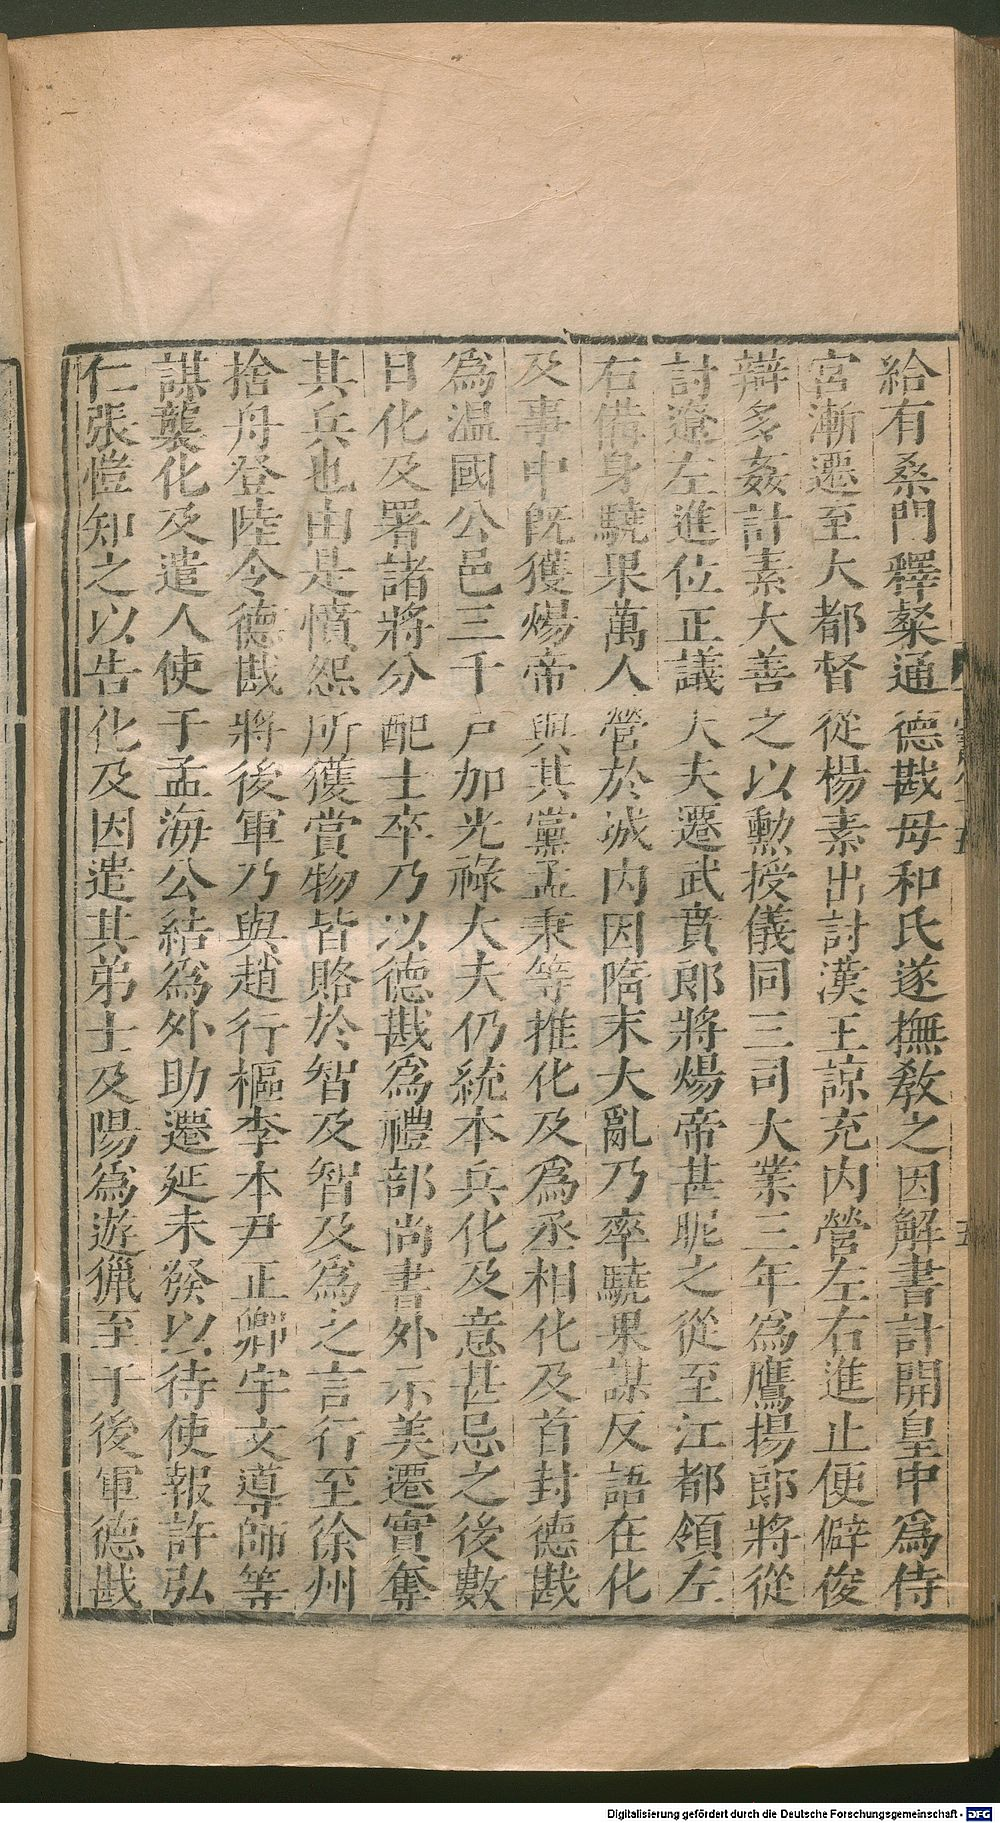 給有桑門釋粲通德戡母和氏遂撫教之因解書計開皇中爲侍
宮漸遷至大都督從楊素出討漢王諒充内營左右進止便僻俊
辯多姦計素大善之以勲授儀同三司大業三年爲鷹揚郎將從
討遼左進位正議大夫遷武賁郎將煬帝甚昵之從至江都領左
右備身驍果萬人營於城内因隋末大亂乃率驍果謀反語在化
及事中既獲煬帝與其黨孟秉等推化及爲丞相化及首封德戡
爲温國公邑三千戸加光祿大夫仍統本兵化及意甚忌之後數
日化及署諸將分配士卒乃以德戡爲禮部尚書外示美遷實奪
其兵也由是憤怨所獲賞物皆賂於智及智及爲之言行至徐州
捨舟登陸令德戡將後軍乃與趙行樞李本尹正卿宇文導師等
謀襲化及遣人使于孟海公結爲外助遷延未發以待使報許弘
仁張愷知之以告化及因遣其弟士及陽爲遊獵至于後軍德戡
Digitalisierung gefördert durch die Deutsche Forschungsgemeinschaft - DFG